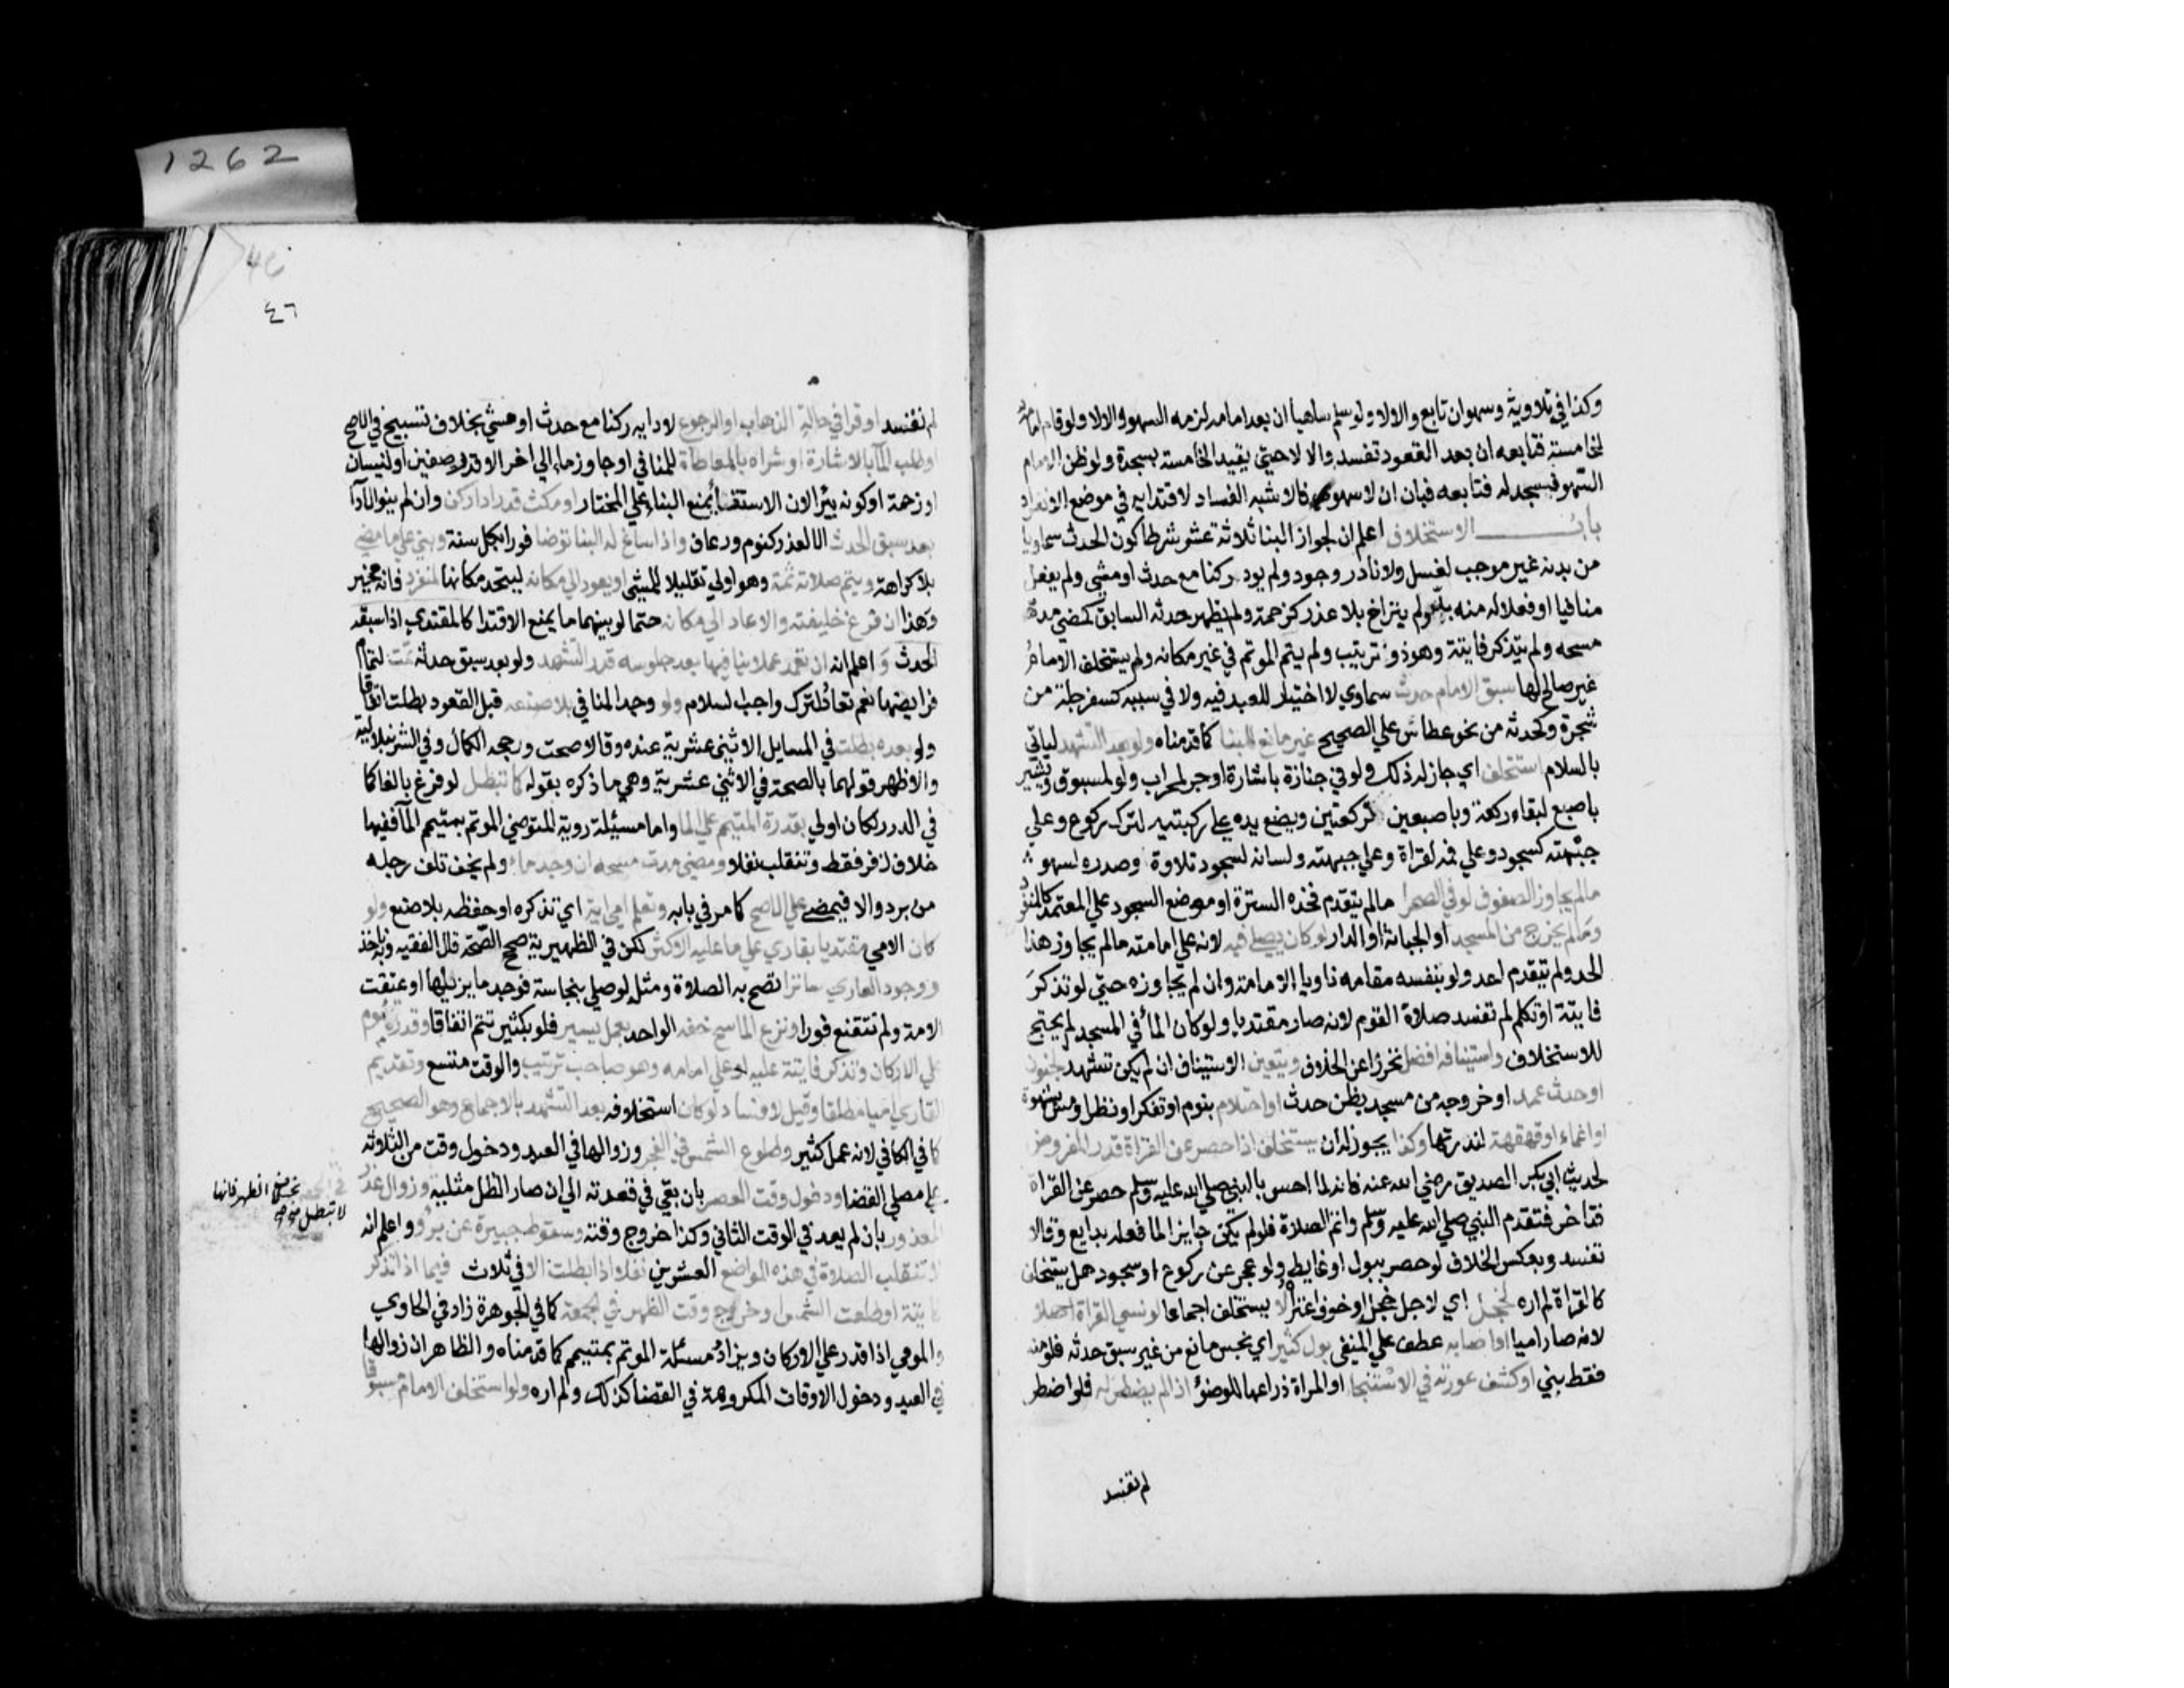 وكذا في تلاوية وسهوان تابع والالا ولو سلم ساهيا ان بعد امامه لزمه السهو والالا ولو قام امامه
لخامسة فتابعه ان بعد القعود تفسد والا لا حتي يقيد الخامسة بسجدة ولو ظن الامام
السهو فسجد له فتابعه فبان ان لا سهو فالاشبه الفساد لاقتدايه في موضع الانفراد
باب الاستخلاف اعلم ان لجواز البنا ثلاثة عشر شرطا كون الحدث سماويا
من بدنه غير موجب لغسل ولا نادر وجود ولم يود ركنا مع حدث او مشي ولم يفعل
منافيا او فعلا له منه بد ولم يتراخ بلا عذر كزحمة ولم يظهر حدثه السابق كمضي مدة
مسحه ولم يتذكر فايتة وهو ذو ترتيب ولم يتم الموتم في غير مكانه ولم يستخلف الامام
غير صالح لها سبق الامام حدث سماوي لا اختيار للعبد فيه ولا في سببه كسفرجلة من
شجرة وكحدثه من نحو عطاس علي الصحيح غير مانع للبنا كما قدمناه ولو بعد التشهد لياتي
بالسلام استخلف اي جاز له ذلك ولو في جنازة باشارة او جر لمحراب ولو لمسبوق ويشير
باصبع لبقاء ركعة وباصبعين لركعتين ويضع يده علي ركبتيه لترك ركوع وعلي
جبهته كسجود وعلي فمه لقراة وعلي جبهته ولسانه لسجود تلاوة وصدره لسهو
مالم يجاوز الصفوف لو في الصحرا مالم يتقدم فحده السترة او موضع السجود علي المعتمد كالمنفرد
ومالم يخرج من المسجد او الجبانة او الدار لو كان يصلي فيه لانه علي امامته مالم يجاوز هذا
الحد ولم يتقدم احد ولو بنفسه مقامه ناويا الامامة وان لم يجاوزه حتي لو تذكر
فايتة او تكلم لم تفسد صلاة القوم لانه صار مقتديا ولو كان الما في المسجد لم يحتج
للاستخلاف واستينافه افضل تحرزا عن الخلاف ويتعين الاستيناف ان لم يكن تشهد لجنون
او حدث عمدا او خروجه من مسجد بظن حدث او احتلام بنوم او تفكر او نظر او مس بشهوة
او اغماء او قهقهة لندرتها وكذا يجوز له ان يستخلف اذا حصر عن القراة قدر المفروض
لحديث ابي بكر الصديق رضي الله عنه فانه لما احس بالنبي صلي الله عليه وسلم حصر عن القراة
فتاخر فتقدم النبي صلي الله عليه وسلم واتم الصلاة فلو لم يكن جايزا لما فعله بدايع وقالا
تفسد وبعكس الخلاف لو حصر ببول او غايط ولو عجز عن ركوع او سجود هل يستخلف
كالقراة لم اره لخجل اي لاجل خجل او خوف اعتراه لا يستخلف اجماعا لو نسي القراة اصلا
لانه صار اميا او اصابه عطف علي المنفي بول كثير اي نجس مانع من غير سبق حدثه فلو منه
فقط بني او كشف عورته في الاستنجا او المراة ذراعها للوضؤ اذا لم يضطر له فلو اضطر
لم تفسد
٤٦
لم تفسد او قرا في حالة الذهاب او الرجوع لاداىه ركنا مع حدث او مشي بخلاف تسبيح في الاصح
او طلب الما بالاشارة او شراه بالمعاطاة للمنافي او جاوز ماء الي اخر الا قدر صفين او لنسيان
او زحمة او كونه بئرا لان الاستقا يمنع البنا علي المختار او مكث قدر اداركن وان لم ينو الادا
بعد سبق الحدث الا لعذر كنوم ورعاف واذا ساغ له البنا توضا فورا بكل سنة وبني علي ما مضي
بلا كراهة ويتم صلاته ثمة وهو اولي تقليلا للمشي او يعود الي مكانه ليتحد مكانها كمنفرد فانه مخير
وهذا ان فرغ خليفته والا عاد الي مكانه حتما لو بينهما ما يمنع الاقتدا كالمقتدي اذا سبقه
الحدث و اعلم انه ان تعمد عملا ينافيها بعد جلوسه قدر التشهد ولو بعد سبق حدثه تمت لتمام
فرايضها نعم تعاد لترك واجب السلام ولو وجد المنافي بلا صنعه قبل القعود بطلت اتفاقا
ولو بعده بطلت في المسايل الاثني عشرية عنده وقالا صحت ورجحه الكمال وفي الشرنبلالية
والاظهر قولهما بالصحة في الاثني عشرية وهي ما ذكره بقوله كما تبطل لو فرغ بالفا كما
في الدرر لكان اولي بقدرة المتيمم علي الما واما مسئلة روية المتوضي الموتم بمتيمم الما ففيها
خلاف زفر فقط وتنقلب نفلا ومضي مدة مسحه ان وجد ماء ولم يخف تلف رجله
من برد والا فيمضي علي الاصح كما مر في بابه وتعلم امي اية اي تذكره او حفظه بلا صنع ولو
كان الامي مقتديا بقاري علي ما عليه الاكثر لكن في الظهيرية صحح الصحة قال الفقيه وبه ناخذ
ووجود العاري ساترا تصح به الصلاة ومثله لو صلي بنجاسة فوجد ما يزيلها او عتقت
الامة ولم تتقنع فورا ونزع الماسح خفه الواحد بعمل يسير فلو بكثير تتم اتفاقا وقدرة موم
علي الاركان وتذكر فايتة عليه او علي امامه وهو صاحب ترتيب والوقت متسع وتقديم
القاري اميا مطلقا وقيل لا فساد لو كان استخلافه بعد التشهد بالاجماع وهو الصحيح
كما في الكافي لانه عمل كثير وطلوع الشمس في الفجر وزوالها في العيد ودخول وقت من الثلاثة
علي مصلي القضا ودخول وقت العصر بان بقي في قعدته الي ان صار الظل مثليه وزوال عذر
المعذور بان لم يعد في الوقت الثاني وكذا خروج وقته وسقوط جبيرة عن برؤ واعلم انه
لا تنقلب الصلاة في هذه المواضع العشرين نفلا اذا بطلت الا في ثلاث فيما اذا تذكر
فايتة او طلعت الشمس او خرج وقت الظهر في الجمعة كما في الجوهرة زاد في الحاوي
والمومي اذا قدر علي الاركان ويزاد مسئلة الموتم بمتيمم كما قدمناه والظاهر ان زوالها
في العيد ودخول الاوقات المكروهة في القضا كذلك ولم اره ولو استخلف الامام مسبوقا
في الجمعة بخلاف الظهر فانها
لا تبطل
1262